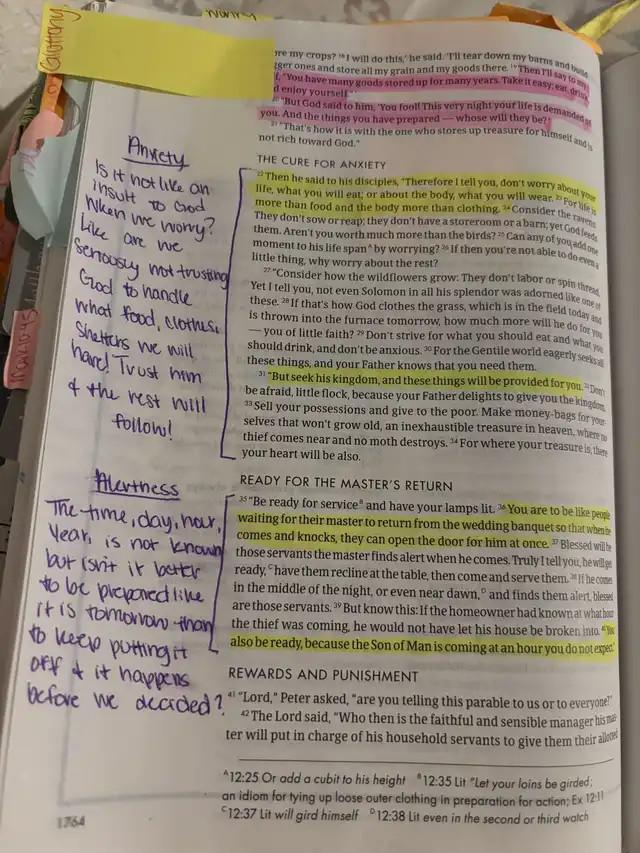 Gluttony
Worry
Mark 10:45
Anxiety
Is it not like an
insult to God
when we worry?
Like are we
seriously not trusting
God to handle
what food, clothes,
shelters we will
have! Trust him
& the rest will
follow!
Alertness
The time, day, hour,
year, is not known
but isn't it better
to be prepared like
it is tomorrow than
to keep putting it
off & it happens
before we decided?
ore my crops? 18 I will do this,' he said. 'I'll tear down my barns and build
ger ones and store all my grain and my goods there. 19 Then I'll say to my
f, "You have many goods stored up for many years. Take it easy; eat, drink,
d enjoy yourself."'
20 "But God said to him, 'You fool! This very night your life is demanded of
you. And the things you have prepared — whose will they be?'
21 "That's how it is with the one who stores up treasure for himself and is
not rich toward God."
THE CURE FOR ANXIETY
22 Then he said to his disciples, "Therefore I tell you, don't worry about your
life, what you will eat; or about the body, what you will wear. 23 For life is
more than food and the body more than clothing. 24 Consider the ravens:
They don't sow or reap; they don't have a storeroom or a barn; yet God feeds
them. Aren't you worth much more than the birds? 25 Can any of you add one
moment to his life span A by worrying? 26 If then you're not able to do even a
little thing, why worry about the rest?
27 "Consider how the wildflowers grow: They don't labor or spin thread.
Yet I tell you, not even Solomon in all his splendor was adorned like one of
these. 28 If that's how God clothes the grass, which is in the field today and
is thrown into the furnace tomorrow, how much more will he do for you
— you of little faith? 29 Don't strive for what you should eat and what you
should drink, and don't be anxious. 30 For the Gentile world eagerly seeks all
these things, and your Father knows that you need them.
31 "But seek his kingdom, and these things will be provided for you. 32 Don't
be afraid, little flock, because your Father delights to give you the kingdom.
33 Sell your possessions and give to the poor. Make money-bags for your-
selves that won't grow old, an inexhaustible treasure in heaven, where no
thief comes near and no moth destroys. 34 For where your treasure is, there
your heart will be also.
READY FOR THE MASTER'S RETURN
35 "Be ready for service B and have your lamps lit. 36 You are to be like people
waiting for their master to return from the wedding banquet so that when he
comes and knocks, they can open the door for him at once. 37 Blessed will be
those servants the master finds alert when he comes. Truly I tell you, he will get
ready, C have them recline at the table, then come and serve them. 38 If he comes
in the middle of the night, or even near dawn, D and finds them alert, blessed
are those servants. 39 But know this: If the homeowner had known at what hour
the thief was coming, he would not have let his house be broken into. 40 You
also be ready, because the Son of Man is coming at an hour you do not expect."
REWARDS AND PUNISHMENT
41 "Lord," Peter asked, "are you telling this parable to us or to everyone?"
42 The Lord said, "Who then is the faithful and sensible manager his mas-
ter will put in charge of his household servants to give them their allotted
A 12:25 Or add a cubit to his height B 12:35 Lit "Let your loins be girded;
an idiom for tying up loose outer clothing in preparation for action; Ex 12:11
C 12:37 Lit will gird himself D 12:38 Lit even in the second or third watch
1764